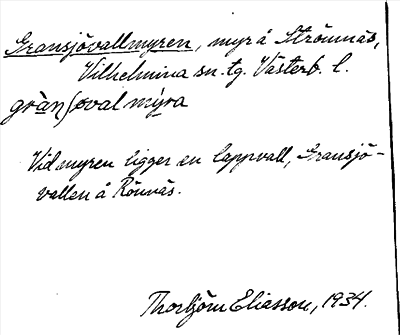 Gransjövallmyren, myr å Strömnäs,
Vilhelmina sn. tg. Västerb. l.
grànʃoval mýra
Vid myren ligger en lappvall, Gransjö-
vallen å Rönnäs.
Thorbjörn Eliasson, 1934.